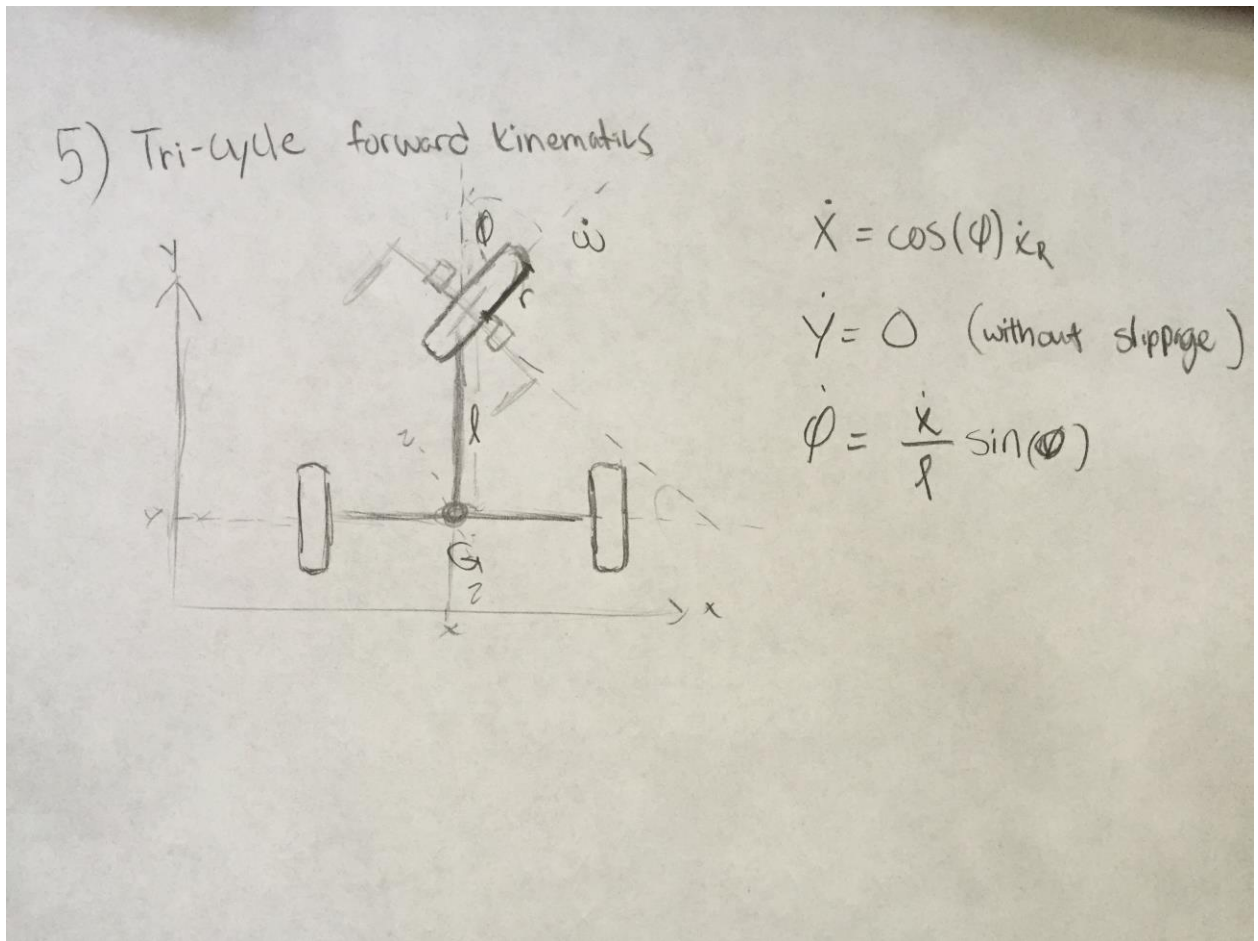 5) Tri-cycle forward kinematics
y
φ
ω̇
r
l
y
G
x
x
Ẋ = cos(φ) ẋ_R
Ẏ = 0 (without slippage)
φ̇ = ẋ/l sin(φ)